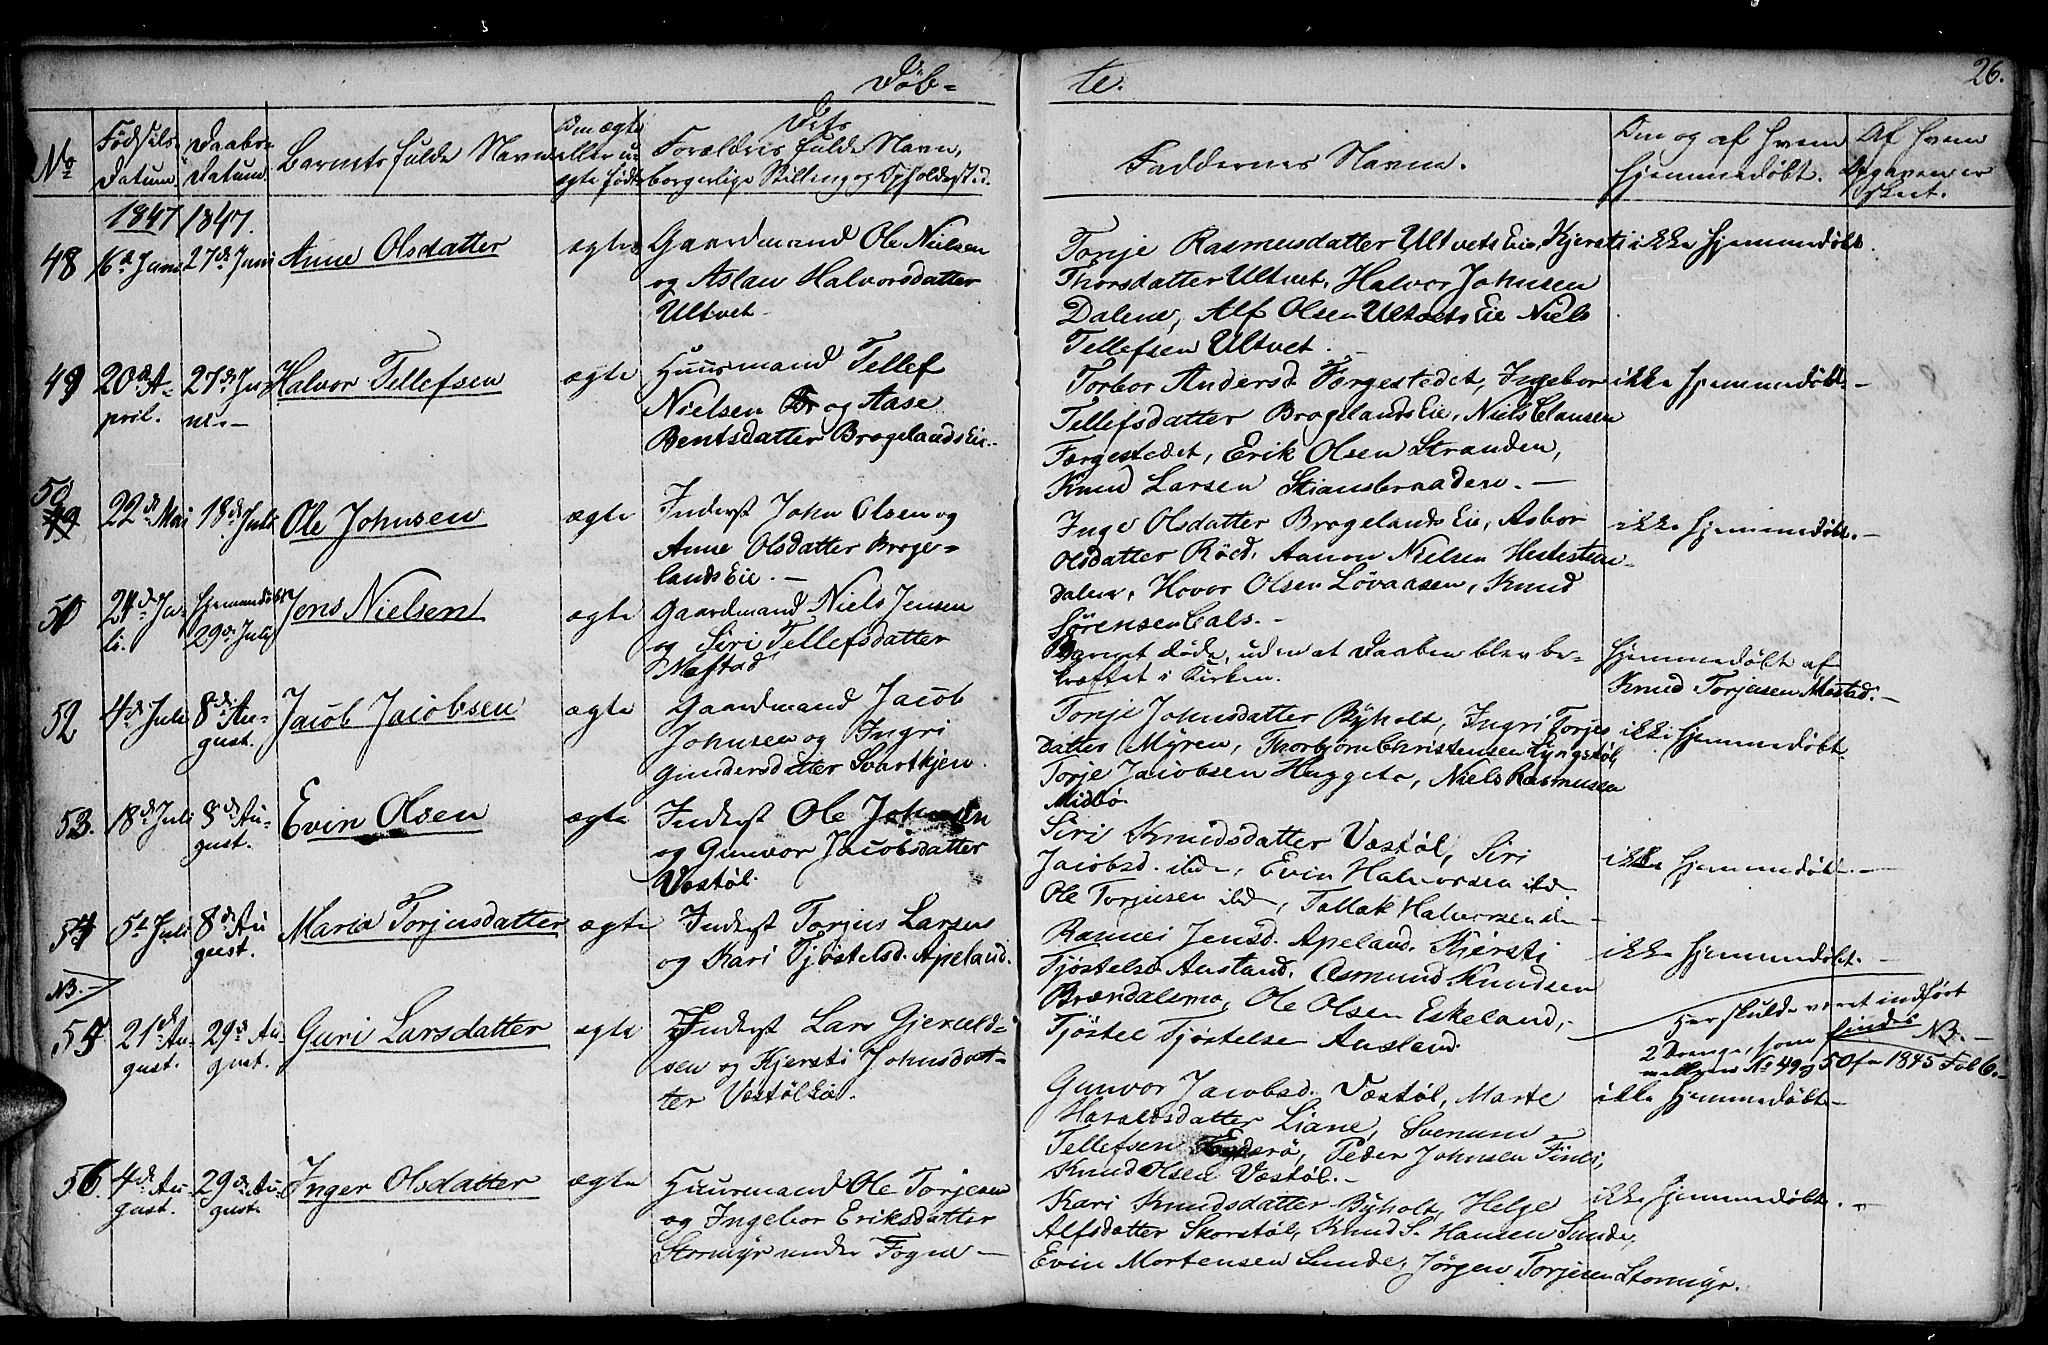 Døb-
te.
26.
No
Fødsels-
datum.
Daabs-
datum.
Barnets fulde Navn
Om ægte
eller u-
ægte født
Dets
Forældres fulde Navn,
borgerlige Stilling og Opholdssted.
Faddernes Navne.
Om og af hvem
hjemmedøbt.
Af hvem
Opgaven er
skeet.
1847
1847.
48
16d Juni
27de Juni
Anne Olsdatter
ægte
Gaardmand Ole Nielsen
og Aslau Halvorsdatter
Ultvet
Tonje Rasmusdatter Ultvets Eie, Kjersti
Thorsdatter Ultvet, Halvor Johnsen
Dalene, Alf Olsen Ultvets Eie Niels
Tellefsen Ultvet.
ikke hjemmedøbt.
49
20de A-
pril.
27de Ju-
ni.-
Halvor Tellefsen
ægte
Huusmand Tellef
Nielsen og Aase
Bentsdatter Brogelands Eie.
Torbor Andersd. Færgestedet, Ingebor
Tellefsdatter Brogelands Eie, Niels Clausen
Færgestedet, Erik Olsen Stranden,
Knud Larsen -
ikke hjemmedøbt.-
50
49
22de Mai
18de Juli
Ole Johnsen
ægte
Inderst John Olsen og
Anne Olsdatter Broge-
lands Eie. -
Inge Olsdatter Brogelands Eie, Asbor
Olsdatter Röed, Aanon Nielsen
Dalen, Hovor Olsen Løvaasen, Knud
Sørensen Cals.-
ikke hjemmedøbt.-
51
24de Ju-
li.
Hjemmedøbt
29de July
Jens Nielsen
ægte
Gaardmand Niels Jensen
og Siri Tellefsdatter
Mestad
Barnet døde, uden at Daaben blev be-
kræftet i Kirken.
Hjemmedøbt af
Knud Torjusen Mestad.-
52
4de Juli
8de Au-
gust.
Jacob Jacobsen
ægte
Gaardmand Jacob
Johnsen og Ingri
Gundersdatter Svartkjen.
Tonje Johnsdatter Byholt, Ingri Torjes
datter Myren, Thorbjørn Christensen Lyngstøl,
Torje Jacobsen Huggeto, Niels Rasmussen
Midbö.
ikke hjemmedøbt
53.
18de Juli
8de Au-
gust.
Evin Olsen
ægte
Inderst Ole Johnsen
og Gunvor Jacobsdatter
Væstøl.
Siri Knudsdatter Væstøl, Siri
Jacobsd. ibd, Evin Halvorsen ibd
Ole Torjusen ibd, Tallak Halvorsen ibd
ikke hjemmedøbt.-
54
5te Juli
8de Au
gust.
Maria Torjusdatter
ægte
Inderst Torjus Larsen
og Kari Tjøstelsd. Apeland.
Ramei Jensd. Apeland, Kjersti
Tjøstelsd Ausland, Osmund Knudsen
Brændalsmo, Ole Olsen Eskeland,
Tjøstel Tjøstelsen Ausland.
ikke hjemmedøbt.-
NB.-
Her skulde været indført
2 Drenge, som findes NB.-
mellem No 49 og 50 for 1845 Fol 6.-
55
21de Au-
gust.
29de Au-
gust.
Guri Larsdatter
ægte
Inderst Lars Gjeruld-
sen og Kjersti Johnsdat-
ter Væstøl Eie.
Gunvor Jacobsd. Væstøl, Marte
Haraldsdatter Liane, Svenum
Tellefsen Egderø, Peder Johnsen Finli,
Knud Olsen Væstøl.-
ikke hjemmedøbt-
56.
4de Au
gust.
29de Au-
gust.
Inger Olsdatter
ægte
Huusmand Ole Torjesen
og Ingebor Eriksdatter
Stormyr under Fogne -
Kari Knudsdatter Byholt, Helge
Alfsdatter Skorstøl, Knud S. Hansen Sunde,
Evin Mortensen Sunde, Jørgen Torjesen Stormyr.
ikke hjemmedøbt.-